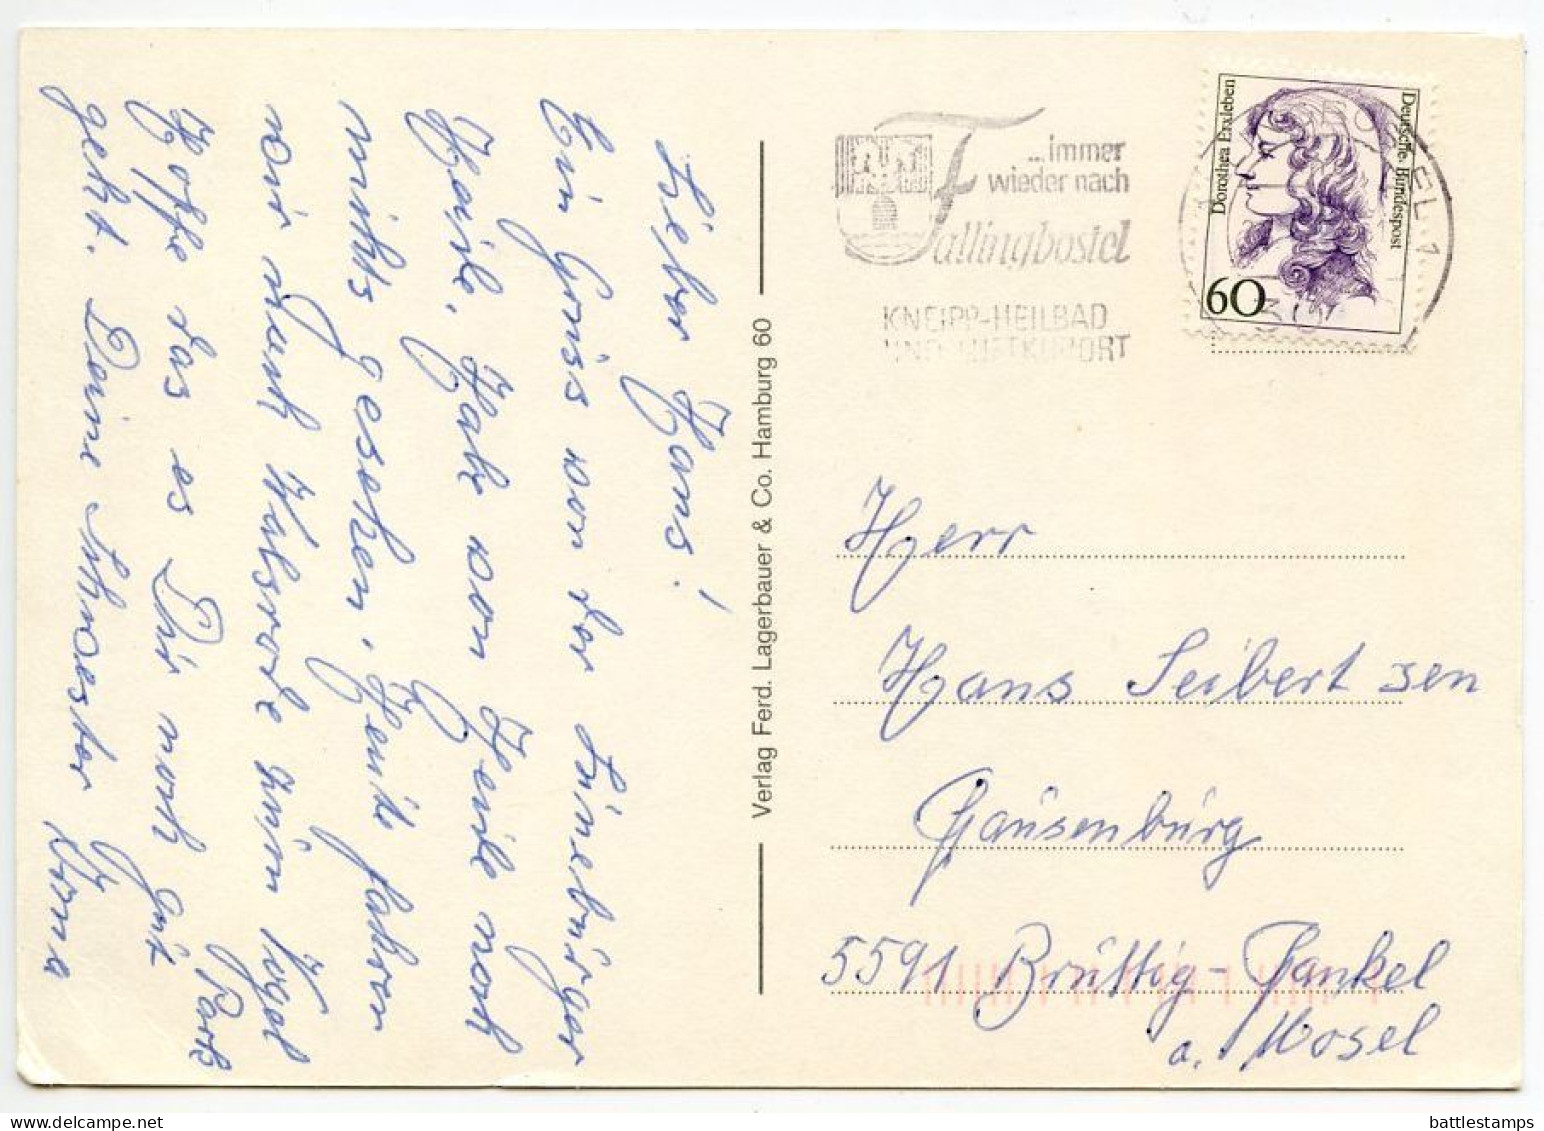 Lieber Hans!
Ein Gruss von der Lüneburger
Heide. Habe von Heide noch
nichts gesehen. Heute fahren
wir nach Walsrode zum Vogel
Park
Hoffe das es Dir noch gut
geht. Deine Schwester Erna
Verlag Ferd. Lagerbauer & Co. Hamburg 60
...immer
wieder nach
Fallingbostel
KNEIPP-HEILBAD
UND LUFTKURORT
Deutsche Bundespost
Dorothea Erxleben
60
Herr
Hans Seibert sen
Gänsenbürg
5591 Bruttig-Fankel
a. Mosel
delcampe.net
battlestamps